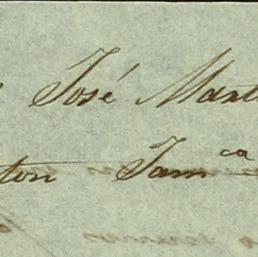 José Mart
ton Jam^ca